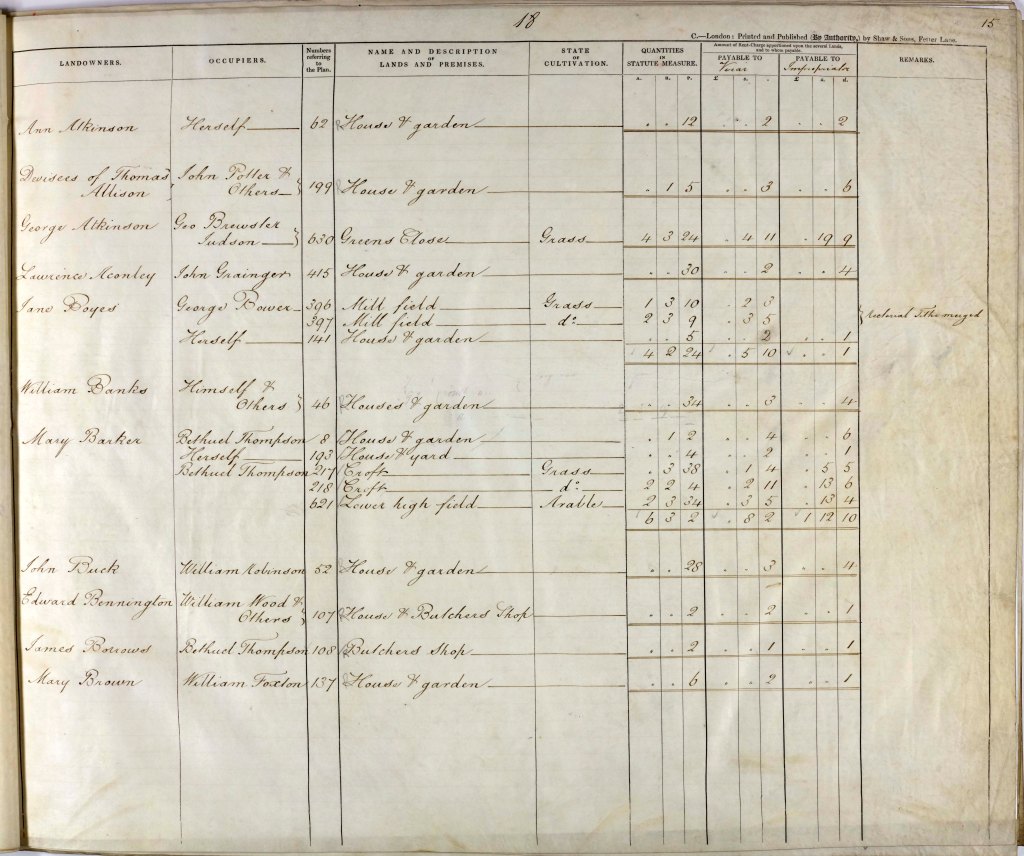 18
15
C.—London: Printed and Published (By Authority,) by Shaw & Sons, Fetter Lane.
LANDOWNERS. OCCUPIERS. Numbers referring to the Plan. NAME AND DESCRIPTION OF LANDS AND PREMISES. STATE OF CULTIVATION. QUANTITIES IN STATUTE MEASURE. Amount of Rent-Charge apportioned upon the several Lands, and to whom payable. PAYABLE TO Vicar PAYABLE TO Impropriator REMARKS.
A. R. P. £ s. d. £ s. d.
Ann Atkinson Herself 62 House & garden . . 12 . . 2 . . 2
Devisees of Thomas John Potter &
Allison Others 199 House & garden . 1 5 . . 3 . . 6
George Atkinson Geo Brewster
Judson 630 Greens Close Grass 4 3 24 . 4 11 . 19 9
Lawrence Aconley John Grainger 415 House & garden . . 30 . . 2 . . 4
Jane Boyes George Bower 396 Mill field Grass 1 3 10 . 2 3
397 Mill field do 2 3 9 . 3 5 Rectorial Tithe merged
Herself 141 House & garden . . 5 . . 2 . . 1
4 2 24 . 5 10 . . 1
William Banks Himself &
Others 46 Houses & garden . . 34 . . 3 . . 4
Mary Barker Bethuel Thompson 8 House & garden . 1 2 . . 4 . . 6
Herself 193 House & yard . . 4 . . 2 . . 1
Bethuel Thompson 217 Croft Grass . 3 38 . 1 4 . 5 5
218 Croft do 2 2 4 . 2 11 . 13 6
621 Lower high field Arable 2 3 34 . 3 5 . 13 4
6 3 2 . 8 2 1 12 10
John Buck William Robinson 52 House & garden . . 28 . . 3 . . 4
Edward Bennington William Wood &
Others 107 House & Butchers Shop . . 2 . . 2 . . 1
James Borrows Bethuel Thompson 108 Butchers Shop . . 2 . . 1 . . 1
Mary Brown William Foxton 137 House & garden . . 6 . . 2 . . 1